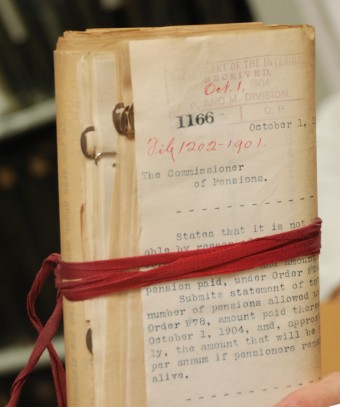 OF THE INTERIOR
RECEIVED,
Oct. 1, 1904
AND M. DIVISION
O. P.
1166
October 1,
File 1202-1901.
The Commissioner
of Pensions.
States that it is not
able by reason
amount
pension paid, under Order
Submits statement of
number of pensions allowed
Order #78, amount paid
October 1, 1904, and,
ly, the amount that will be
per annum if pensioners
alive.